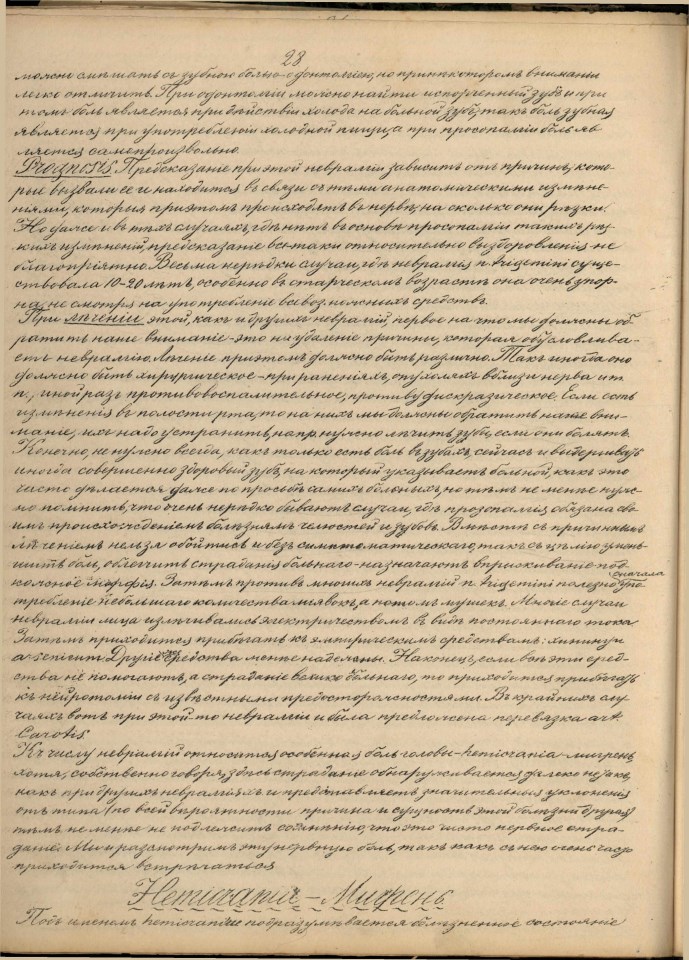 28
можно смѣшать съ зубною болью-одонтолгіею, но при нѣкоторомъ вниманіи
легко отличить. При одонтолгіи можно найти испорченный зубъ и при
томъ боль является при дѣйствіи холода на больной зубъ; такъ боль зубная
является при употребленіи холодной пищи, а при прозопалгіи боль яв-
ляется самопроизвольно.
Prognosis. Предсказаніе при этой невралгіи зависитъ отъ причинъ, кото-
рые вызвали ее и находится въ связи съ тѣми анатомическими измѣне-
ніями, которыя при этомъ происходятъ въ нервѣ, на сколько они рѣзки.
Но даже и въ тѣхъ случаяхъ, гдѣ нѣтъ въ основѣ прозопалгіи такихъ рѣз-
кихъ измѣненій, предсказаніе все-таки относительно выздоровленія не
благопріятно. Весьма нерѣдки случаи, гдѣ невралгія n. trigemini суще-
ствовала 10-20 лѣтъ, особенно въ старческомъ возрастѣ она очень упор-
на, не смотря на употребленіе всевозможныхъ средствъ.
При лѣченіи этой, какъ и другихъ невралгій, первое на что мы должны об-
ратить наше вниманіе - это на удаленіе причины, которая обусловлива-
етъ невралгію. Лѣченіе при этомъ должно быть различно. Такъ иногда оно
должно быть хирургическое - при раненіяхъ, опухоляхъ вблизи нерва и т
п., иной разъ противовоспалительное, противудискразическое. Если есть
измѣненія въ полости рта, то на нихъ мы должны обратить наше вни-
маніе, ихъ надо устранить, напр. нужно лѣчить зубы, если они болятъ.
Конечно, не нужно всегда, какъ только есть боль въ зубахъ, сейчасъ и выдергивать
иногда совершенно здоровый зубъ, на который указываетъ больной, какъ это
часто дѣлается даже по просьбѣ самихъ больныхъ, но тѣмъ не менѣе нуж-
но помнить, что очень нерѣдко бываютъ случаи, гдѣ прозопалгія обязана сво-
имъ происхожденіемъ болѣзнямъ челюстей и зубовъ. Вмѣстѣ съ причиннымъ
лѣченіемъ нельзя обойтись и безъ симптоматическаго, такъ съ цѣлію умень-
шить боль, облегчить страданія больнаго - назначаютъ впрыскиваніе под-
кожное морфія. Затѣмъ противъ многихъ невралгій n. trigemini полезно сначала упо-
требленіе небольшаго количества піявокъ, а потомъ мушекъ. Многіе случаи
невралгіи лица излѣчивались электричествомъ въ видѣ постояннаго тока.
Затѣмъ приходится прибѣгать къ эмпирическимъ средствамъ: хинину и
arsenicum. Другіе средства менѣе надежны. Наконецъ, если всѣ эти сред-
ства не помогаютъ, а страданіе велико больнаго, то приходится прибѣгать
къ нейротоміи съ извѣстными предосторожностями. Въ крайнихъ слу-
чаяхъ вотъ при этой-то невралгіи и была предложена перевязка art.
Carotis.
Къ числу невралгій относится особенная боль головы - hemicrania - мигрень,
хотя, собственно говоря, здѣсь страданіе обнаруживается далеко не такъ,
какъ при другихъ невралгіяхъ и представляетъ значительныя уклоненія
отъ типа (по всей вѣроятности причина и сущность этой болѣзни другая)
тѣмъ не менѣе не подлежитъ сомнѣнію, что это чисто нервное стра-
даніе. Мы и разсмотримъ эту нервную боль, такъ какъ съ нею очень часто
приходится встрѣчаться.
Hemicraniae - Мигрень.
Подъ именемъ hemicraniae подразумѣвается болѣзненное состояніе